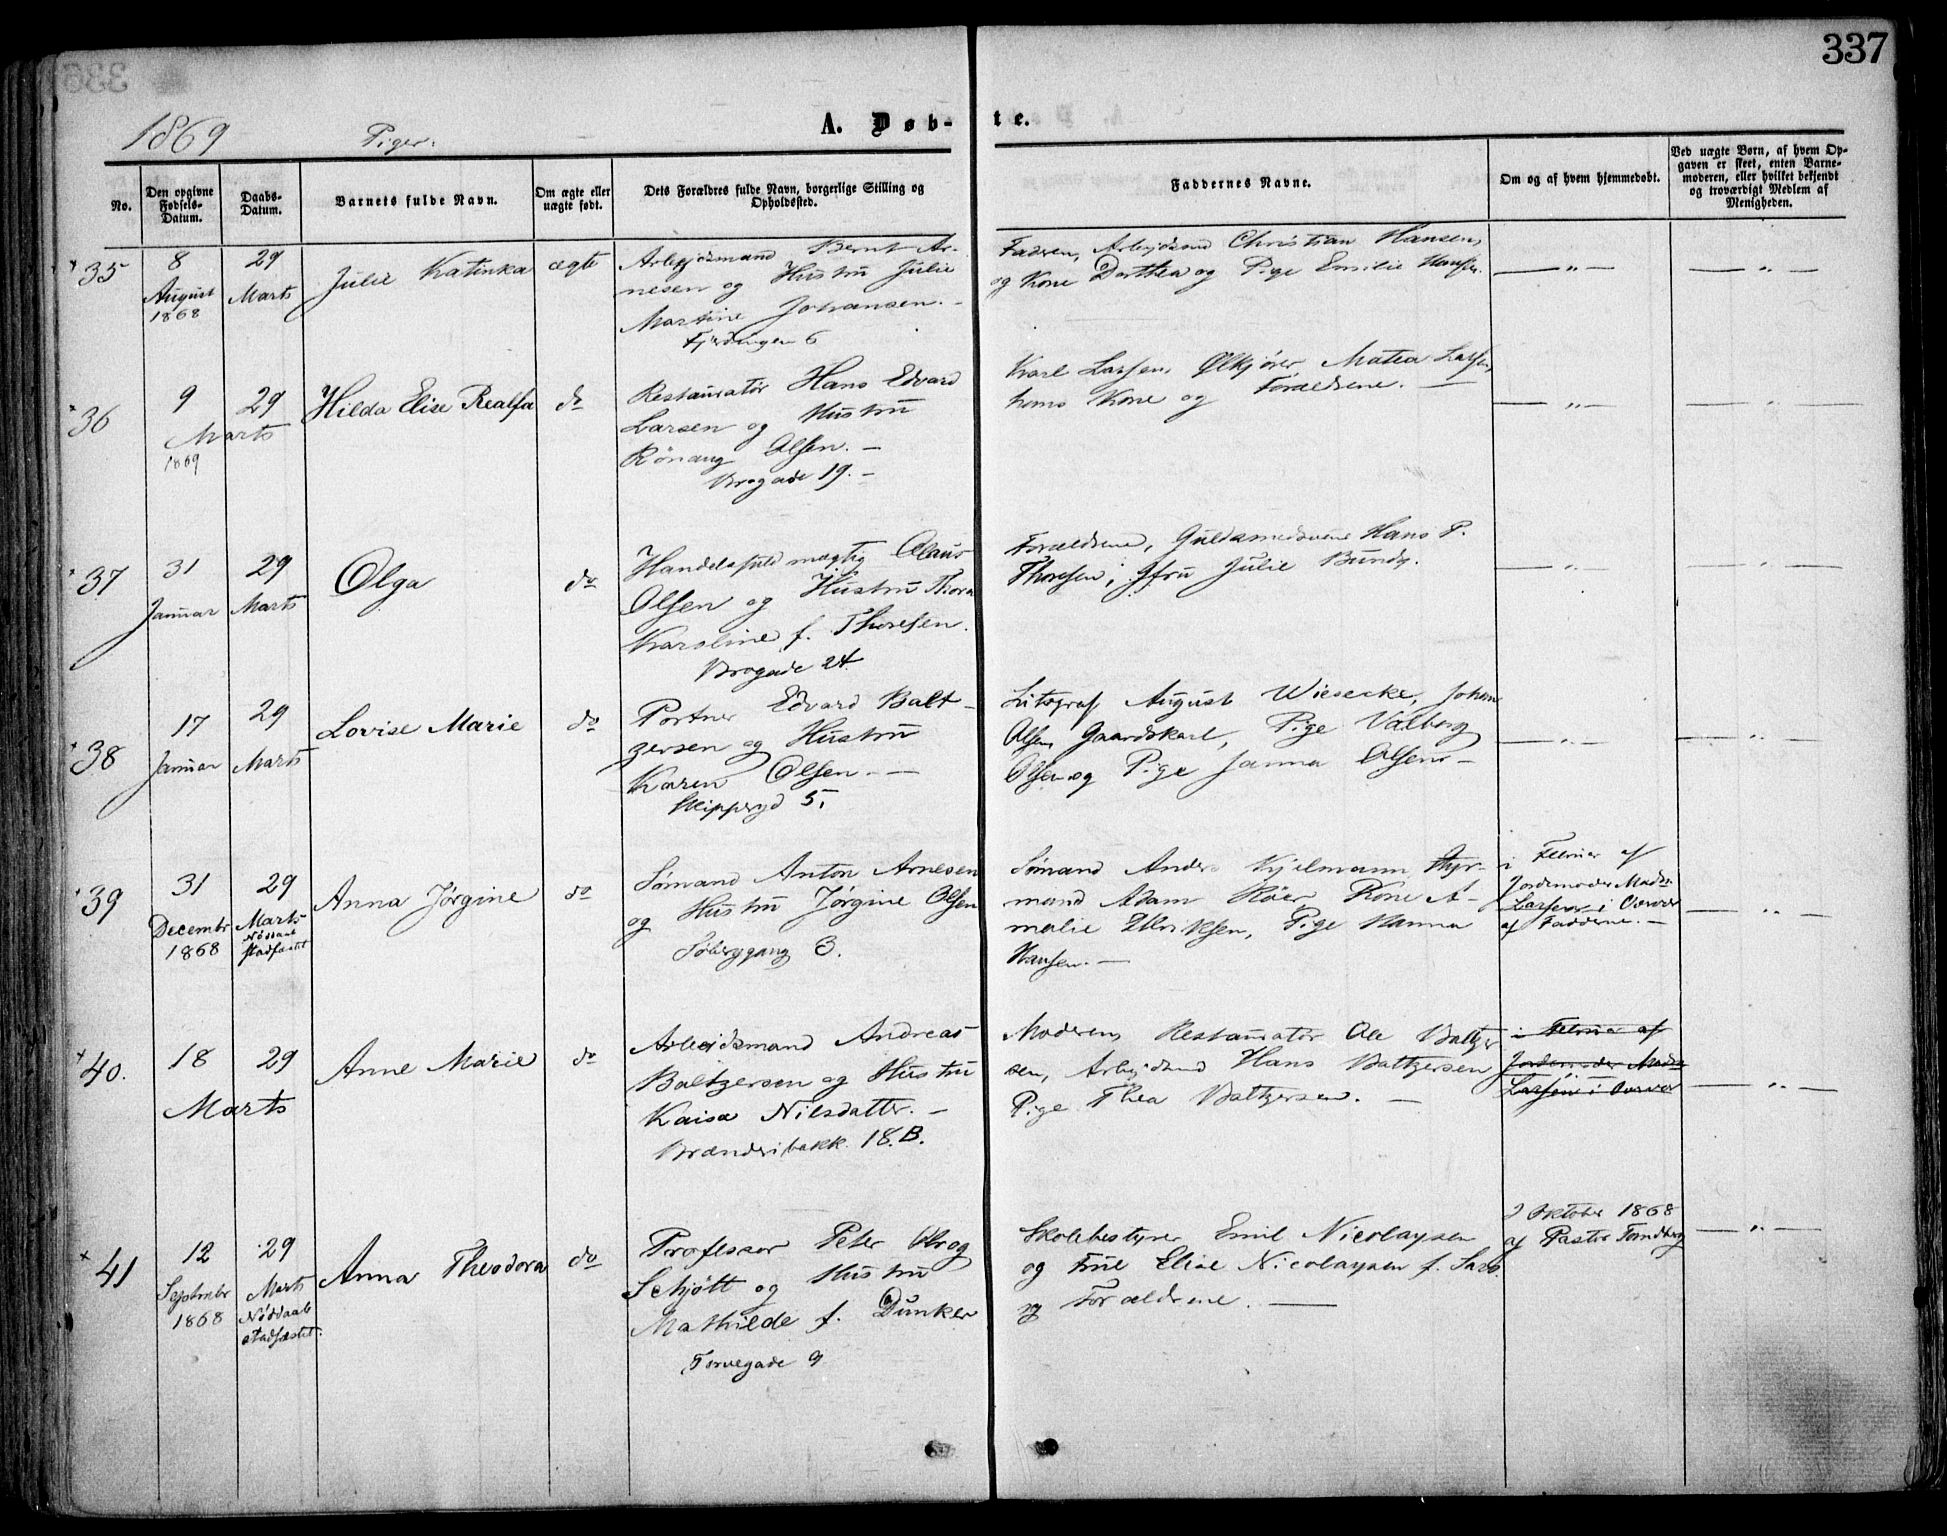 337
1869 Piger.
A. Døbte.
No.
Den opgivne Fødsels-Datum.
Daabs-Datum.
Barnets fulde Navn.
Om ægte eller uægte født.
Dets Forældres fulde Navn, borgerlige Stilling og Opholdssted.
Faddernes Navne.
Om og af hvem hjemmedøbt.
Ved uægte Børn, af hvem Opgaven er skeet, enten Barnemoderen, eller hvilket bekjendt og troværdigt Medlem af Menigheden.
35
8 August 1868
29 Marts
Julie Katinka
ægte
Arbejdsmand Bernt Ar-
nesen og Hustru Julie
Martine Johansen. -
Fjerdingen 6
Faderen, Arbejdsmd Christian Hansen,
og Kone Dorthea og Pige Emilie Hansen.
— " —
— " —
36
9 29
Marts
1869
Hilda Elise Realfa
do
Restauratør Hans Edvard
Larsen og Hustru
Rønaug Olsen. -
Brogade 19. -
Karl Larsen, Ølkjører, Matea Larsen,
hans Kone og Forældrene. —
— " —
— " —
37
31 Januar
29 Marts
Olga
do
Handelsfuldmægtig Olaus
Olsen og Hustru Thora
Karoline f. Thoresen.
Brogade 24.
Forældrene, Guldsmedsvend Hans P.
Thoresen, Jfru Julie Bundy.
— " —
— " —
38
17 Januar
29 Marts
Lovise Marie
do
Portner Edvard Balt-
zersen og Hustru
Karen Olsen. -
Skippergd 5.
Litograf August Wiesecke, Johan
Olsen, Gaardskarl, Pige Valborg
Olsen og Pige Janna Olsen. -
— " —
— " —
39
31 Decembr 1868
29 Marts Nøddaab stadfæstet
Anna Jørgine
do
Sømand Anton Arnesen
og Hustru Jørgine Olsen
Søberggang 3.
Sømand Anders Kjelmann, Styr-
mand Adam Røer, Kone A-
malie Ellriksen, Pige Hanna
Hansen. —
i Februar af
Jordemoder Mad.
Larsen i Overvær
af Fadderne. -
— " —
40.
18 29
Marts
Anne Marie
do
Arbeidsmand Andreas
Baltzersen og Hustru
Kaisa Nilsdatter. -
Brænderibakk. 18.B.
Moderen, Restauratør Ole Baltzer
sen, Arbejdsmd Hans Baltzersen
Pige Thea Baltzersen. —
i Februar af
Jordemoder Mad.
Larsen i Overvær
— " —
41
12 Septembr 1868
29 Marts Nøddaab stadfæstet.
Anna Theodora
do
Professor Peter Olrog
Schjøtt og Hustru
Mathilde f. Dunker
Torvegade 9
Skolebestyrer Emil Nicolaysen
og Frue Elise Nicolaysen f. Sars.
og Forældrene. —
2 Oktober 1868
af Pastor Tandberg
— " —